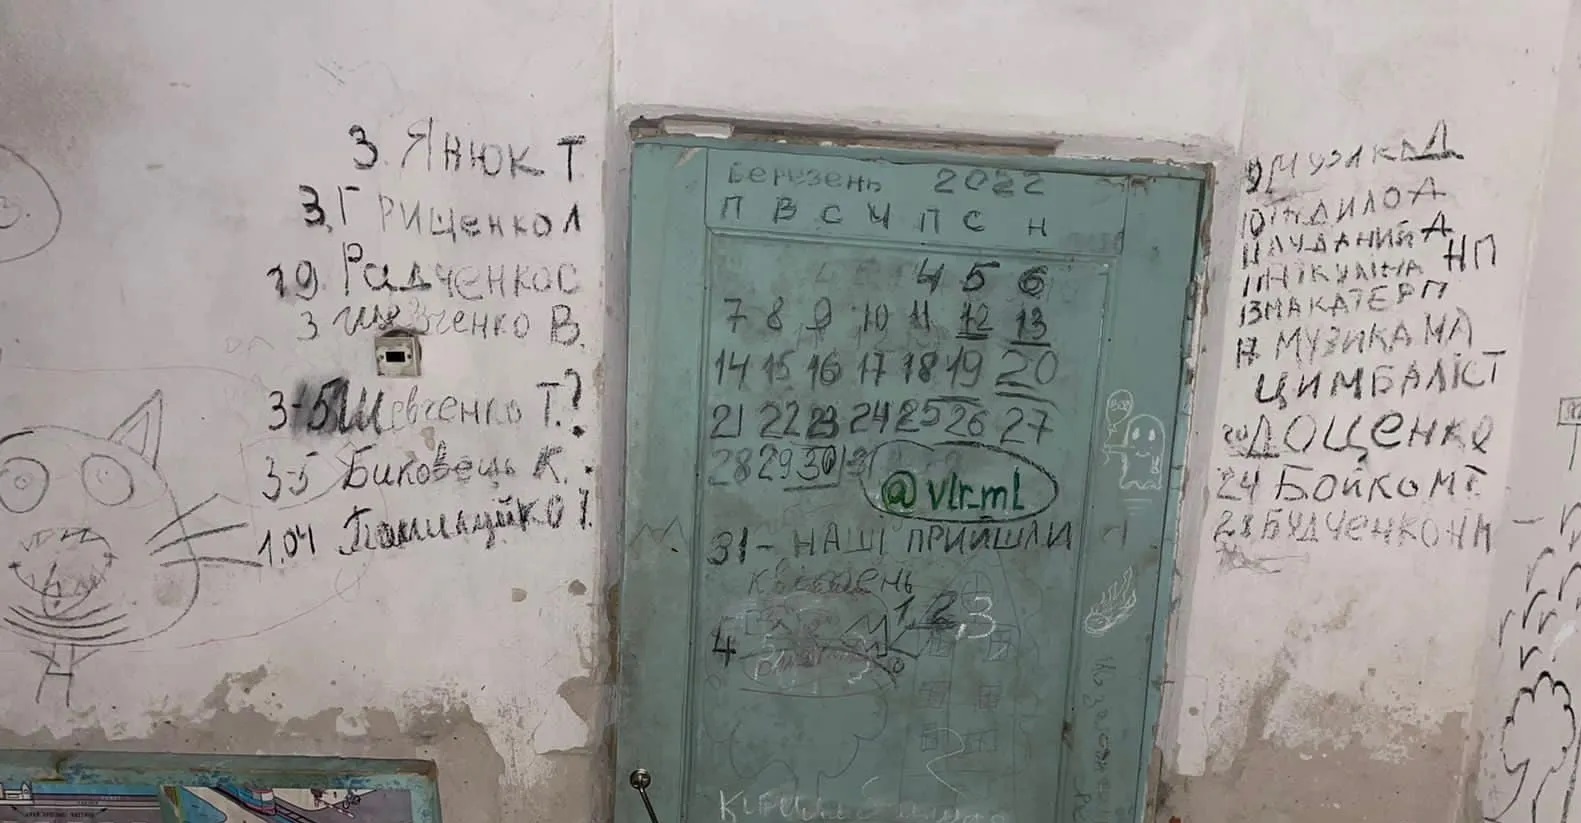 3. ЯНЮК Т
3. ГРИЩенко Л
19 Радченко С
3 Шевченко В.
3-5 Шевченко Т.?
3-5 Биковець К.
1.04
Березень 2022
П В С Ч П С Н
4 5 6
7 8 9 10 11 12 13
14 15 16 17 18 19 20
21 22 23 24 25 26 27
28 29 30 31
@vlr.ml
31 - НАШІ ПРИЙШЛИ
Квітень
1, 2, 3
4
9 МУЗИКА Д
10 ДИЛО А
НП
13 МАКАТЕР П
17 МУЗИКА МЛ
ЦИМБАЛІСТ
20 ДОЩЕНКО
24 БОЙКО М Г.
28 БУДЧЕНКО НМ